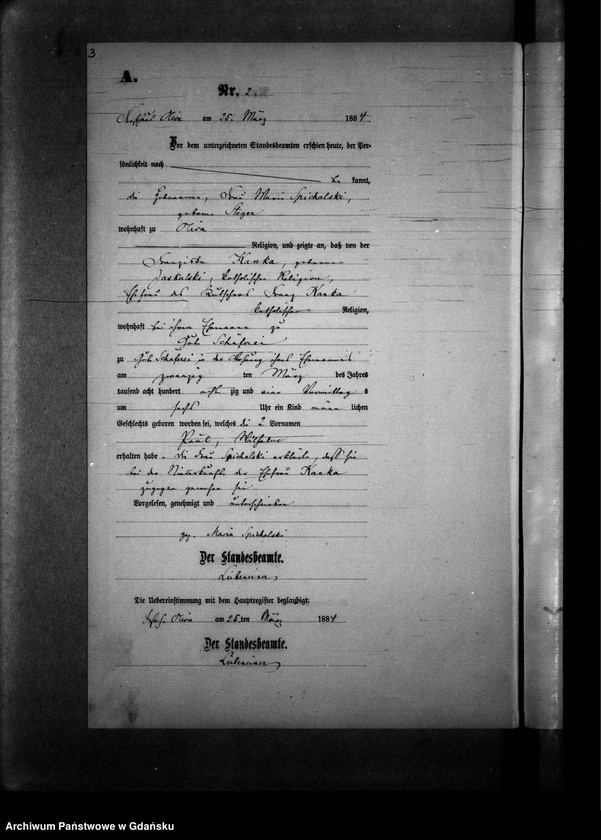 3
A.
Nr. 2.
Oliva am 25. März 1884
Vor dem unterzeichneten Standesbeamten erschien heute, der Per-
sönlichkeit nach
be kannt,
die Hebamme, Frau Marie Spichalski,
geborene Steger
wohnhaft zu Oliva
Religion, und zeigte an, daß von der
Franziska Kanka, geborenen
Jaskulski, katholischer Religion,
Ehefrau des Kutschers Franz Kanka
katholischer Religion,
wohnhaft bei ihrem Ehemanne zu
Guts Schäferei
zu Guts Schäferei in der Wohnung ihres Ehemannes
am zwanzig ten März des Jahres
tausend acht hundert acht zig und vier Vormittag s
um sechs Uhr ein Kind männ lichen
Geschlechts geboren worden sei, welches die 2 Vornamen
Paul, Wilhelm
erhalten habe. Die Frau Spichalski erklärte, daß sie
bei der Niederkunft der Ehefrau Kanka
zugegen gewesen sei
Vorgelesen, genehmigt und unterschrieben
gez. Maria Spichalski
Der Standesbeamte.
Die Uebereinstimmung mit dem Hauptregister beglaubigt.
Oliva am 25. ten März 1884
Der Standesbeamte.
Archiwum Państwowe w Gdańsku